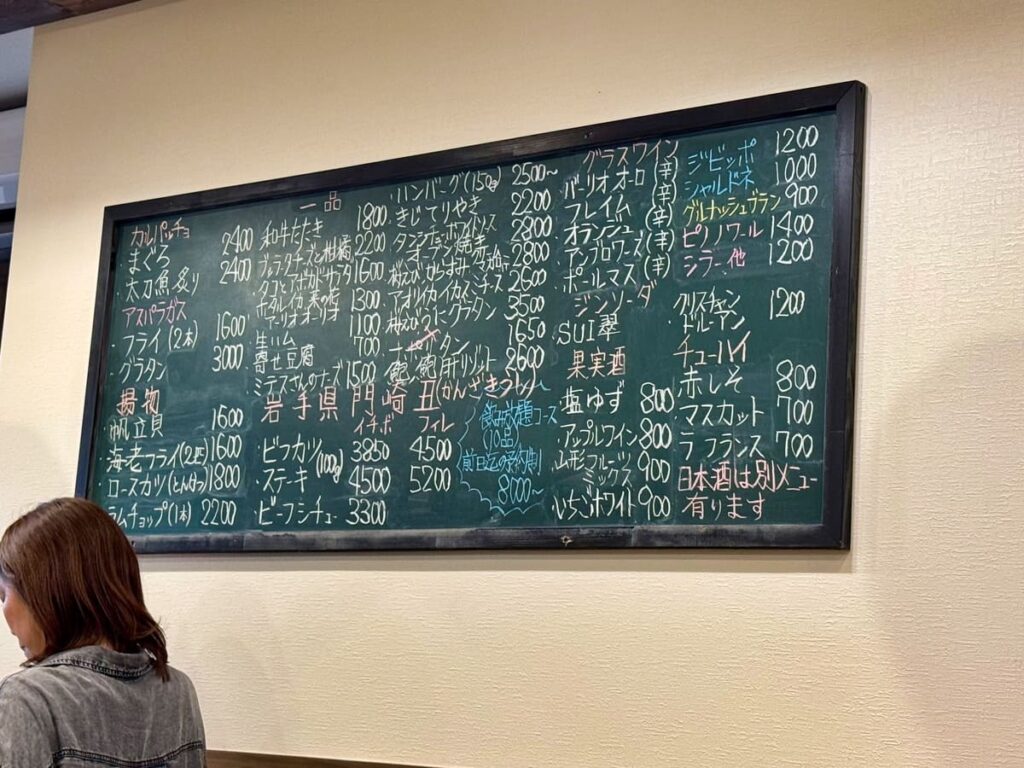 カルパッチョ
・まぐろ 2400
・太刀魚炙り 2400
アスパラガス
・フライ(2本) 1600
・グラタン 3000
揚物
・帆立貝 1600
・海老フライ(2匹) 1600
・ロースカツ(とんかつ) 1800
ラムチョップ(1本) 2200
一品
・和牛たたき 1800
ブラータチーズと柑橘 2200
タコとアボカドサラダ 1600
ホタルイカ 菜の花
アーリオオーリオ 1300
・生ハム 1100
・寄せ豆腐 700
1500
岩手県 門崎 丑(かんざきうし)
イチボ フィレ
・ビフカツ(100g) 3850 4500
・ステーキ 4500 5200
・ビーフシチュー 3300
・ハンバーグ(150g) 2500〜
・きじてりやき 2200
2800
2800
2600
3500
1650
鮑 肝リゾット 2600
飲み放題コース
(10品)
前日迄の予約制
8000〜
グラスワイン
・バーリオオーロ(辛)
・フレイム(辛)
・オランジュ(辛)
・アンブロワーズ(辛)
・ポールマス(辛)
ジンソーダ
・SUI翠
果実酒
・塩ゆず 800
・アップルワイン 800
・山形フルーツ
ミックス 900
・いちごホワイト 900
ジビッボ 1200
シャルドネ 1000
グルナッシュブラン 900
ピノノワール 1400
シラー他 1200
クリスチャン
ドルーアン 1200
チューハイ
赤しそ 800
マスカット 700
ラフランス 700
日本酒は別メニュー
有ります